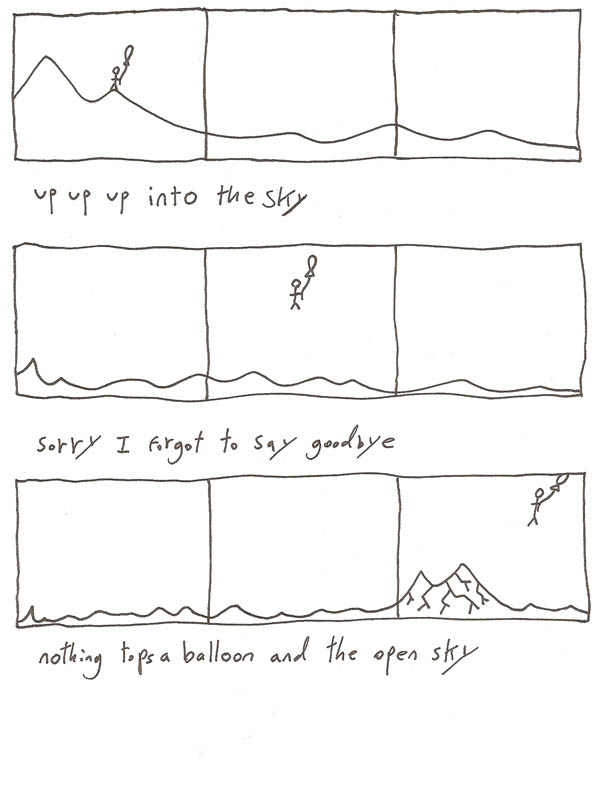 up up up into the sky
sorry I forgot to say goodbye
nothing tops a balloon and the open sky